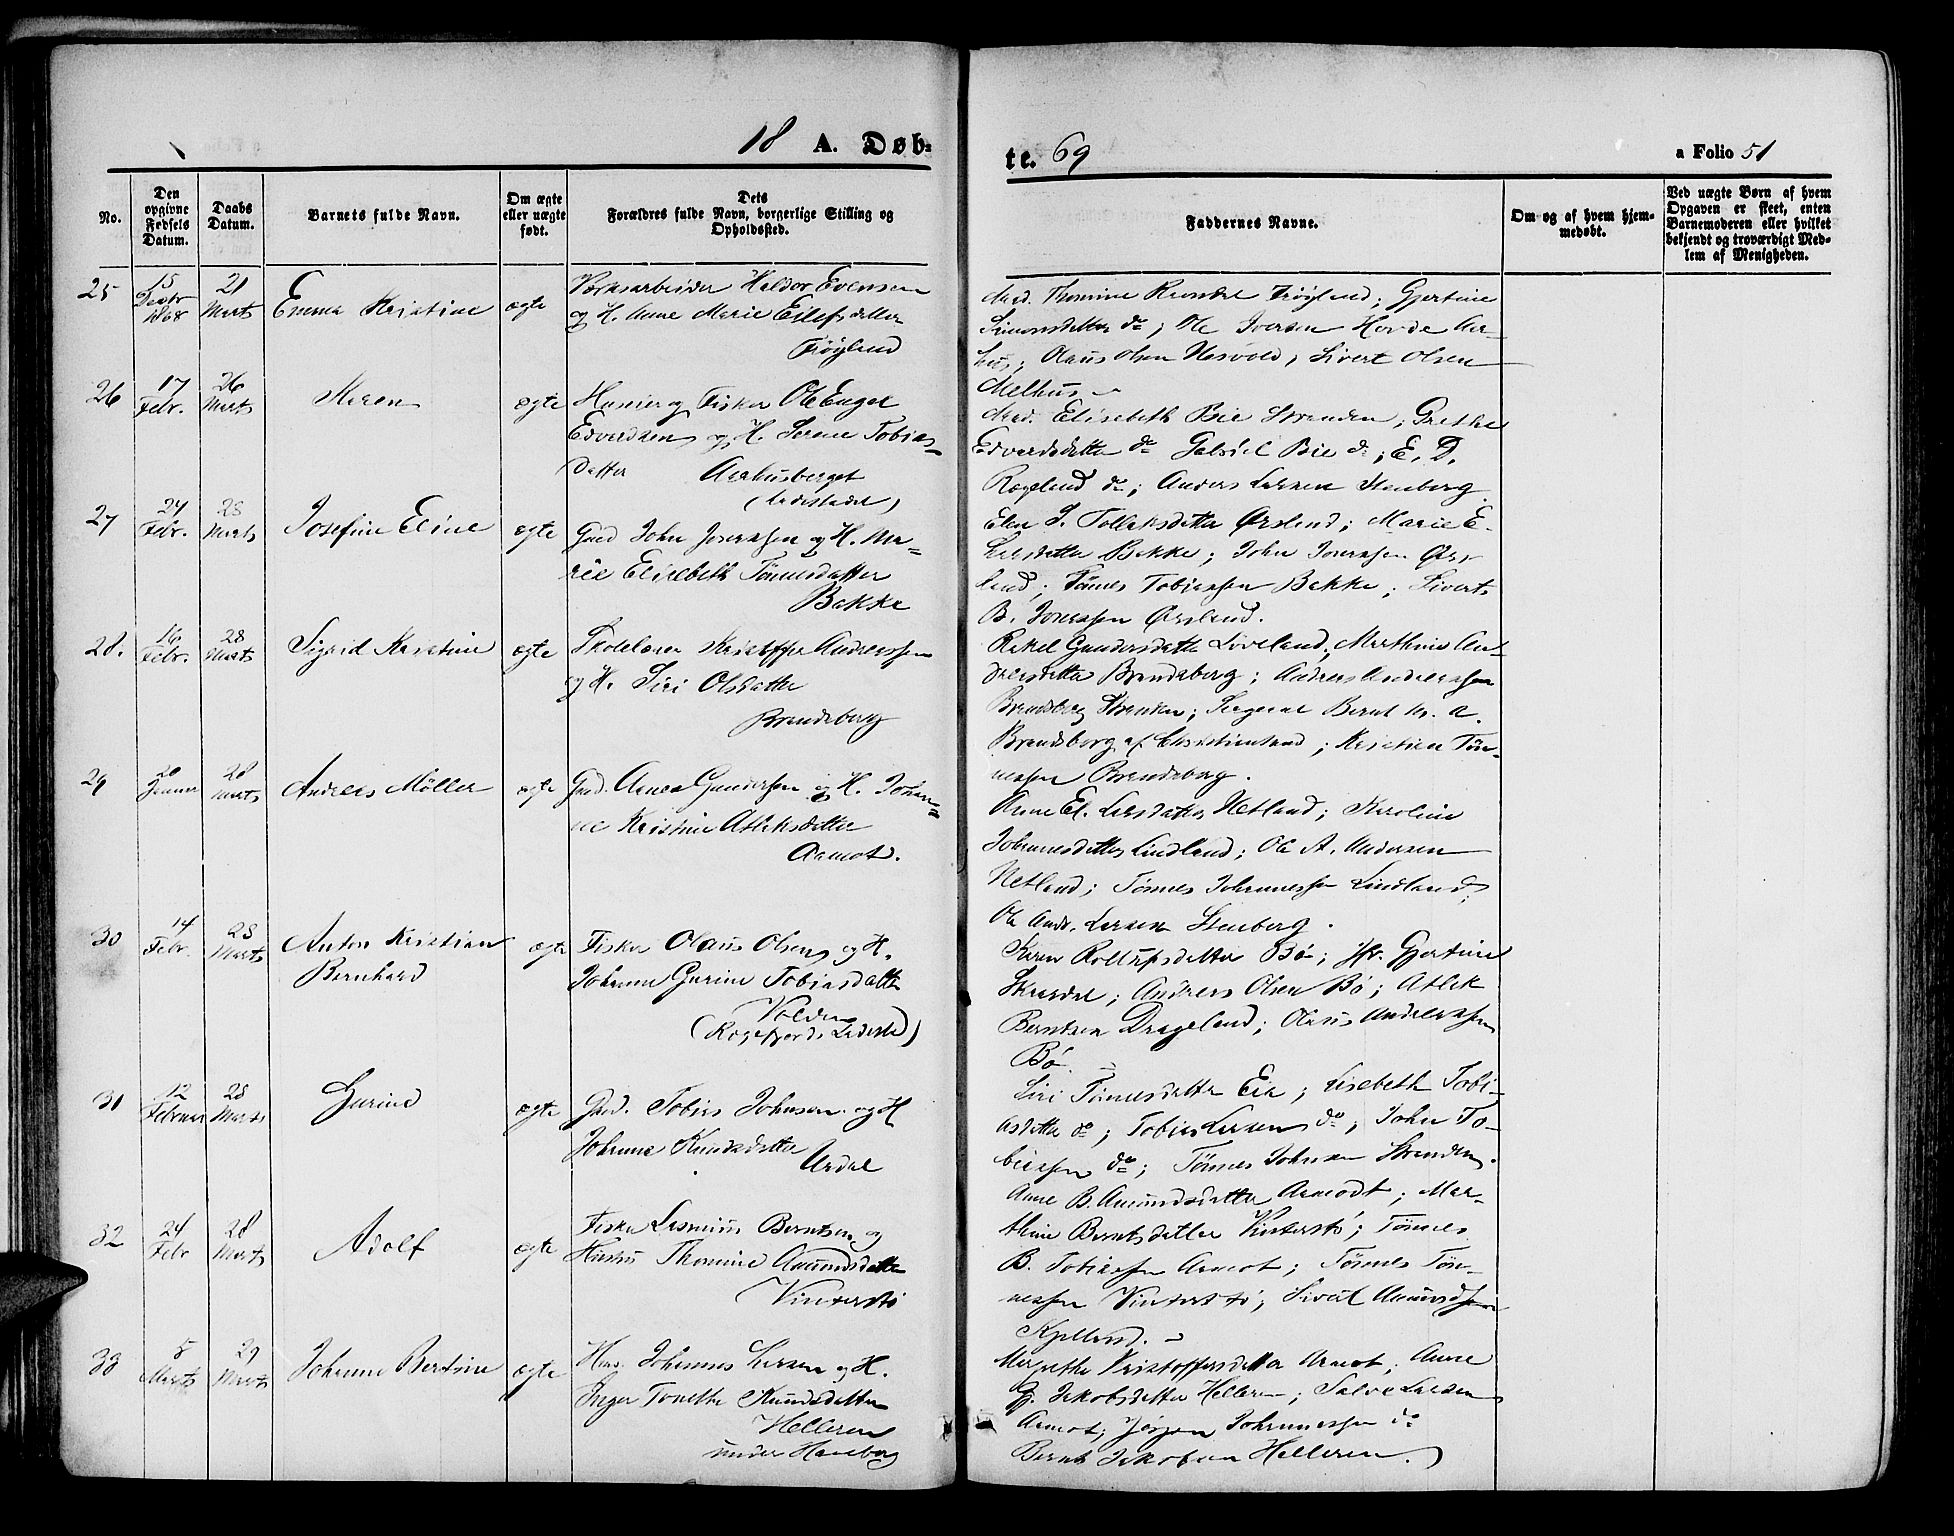 18 A. Døb-
te. 69
a Folio 51
No.
Den opgivne Fødsels Datum.
Daabs Datum.
Barnets fulde Navn.
Om ægte eller uægte født.
Dets Forældres fulde Navn, borgerlige Stilling og Opholdssted.
Faddernes Navne.
Om og af hvem hjemmedøbt.
Ved uægte Børn af hvem Opgaven er skeet, enten Barnemoderen eller hvilket bekjendt og troværdigt Medlem af Menigheden.
25 15 1868 21 Marts Emma Kristine ægte Værksarbeider Haldor Evensen
og H. Anne Marie Eilefsdatter
Frøyland
Mad. Thomine Frøyland; Gjertine
Simonsdatter do; Ole Iversen Hovde Aar-
hus; Olaus Olsen Hesvold, Sivert Olsen
Melhus
26 17 Febr. 26 Marts Maren ægte Husm. og Fisker Ole Enger
Edvardsen og H. Serine Tobias-
datter Aarhusberget
(Ladestedet)
Mad. Elisabeth Bie Stranden; Grethe
Edvardsdatter do Gabriel Bie do; E. D.
Rægeland do; Anders Larsen Stenberg
27 24 Febr. 28 Marts Josefine Eline ægte Gmd John Jonassen og H. Ma-
rie Elisebeth Tønnesdatter
Bakke
Elen S. Tolleksdatter Ørsland; Marie E.
Larsdatter Bakke; John Jonassen Ørs-
land; Tønnes Tobiassen Bakke; Sivert
B. Jonassen Ørsland.
28. 16 Febr. 28 Marts Sigrid Kristine ægte Skolelærer Kristoffer Andreassen
og H. Siri Olsdatter
Brandsberg
Rakel Gundersdatter Loveland; Marthine An-
dreasdatter Brandsberg; Andreas Andreassen
Brandsberg Stranden; Sergeant Bernt Kr. A.
Brandsberg af Christiansand; Kristian Tøn-
nessen Brandsberg.
29 20 Januar 28 Marts Andreas Møller ægte Gmd. Asmea Gunderssen og H. Johan-
ne Kristine Atleksdatter
Aamot.
Anne El. Larsdatter Netland; Karoline
Johannesdatter Lindland; Ole A. Andersen
Netland; Tønnes Johannessen Lindland;
Ole Andr. Larsen Stenberg.
30 14 Febr. 28 Marts Anton Kristian
Bernhard ægte Fisker Olaus Olsen og H.
Johanne Gurine Tobiasdatter
Volden
(Rægefjords Ladested)
Karen Rollefsdatter Bø; Jfr. Gjertine
Skarsdal; Andreas Olsen Bø; Atlek
Berntsen Drageland; Olaus Andreassen
Bø.
31 12 Februar 28 Marts Gurine ægte Gmd. Tobias Johnsen og H
Johanne Knudsdatter
Ardal
Siri Tønnesdatter Eia; Lisebeth Tobi-
asdatter do; Tobias Larsen do; John To-
biassen do; Tønnes Johnsen Stranden.
32 24 Febr 28 Marts Adolf ægte Fisker Rasmus Berntsen og
Hustru Thomine Aamundsdatter
Vinterstø
Anne B. Aamundsdatter Aamodt; Mar-
thine Berntsdatter Vinterstø; Tønnes
B. Tobiassen Aamot; Tønnes Tøn-
nessen Vinterstø; Sivert Aamundsen
33 8 Marts 29 Marts Johanne Bertine ægte Hmd. Johannes Larsen og H.
Inger Tonette Knudsdatter
Helleren
under Haneberg
Margrethe Kristoffersdatter Aamot; Anne
G. Jakobsdatter Helleren; Salve Larsen
Aamot; Jørgen Johannessen do
Bernt Jakobsen Helleren.